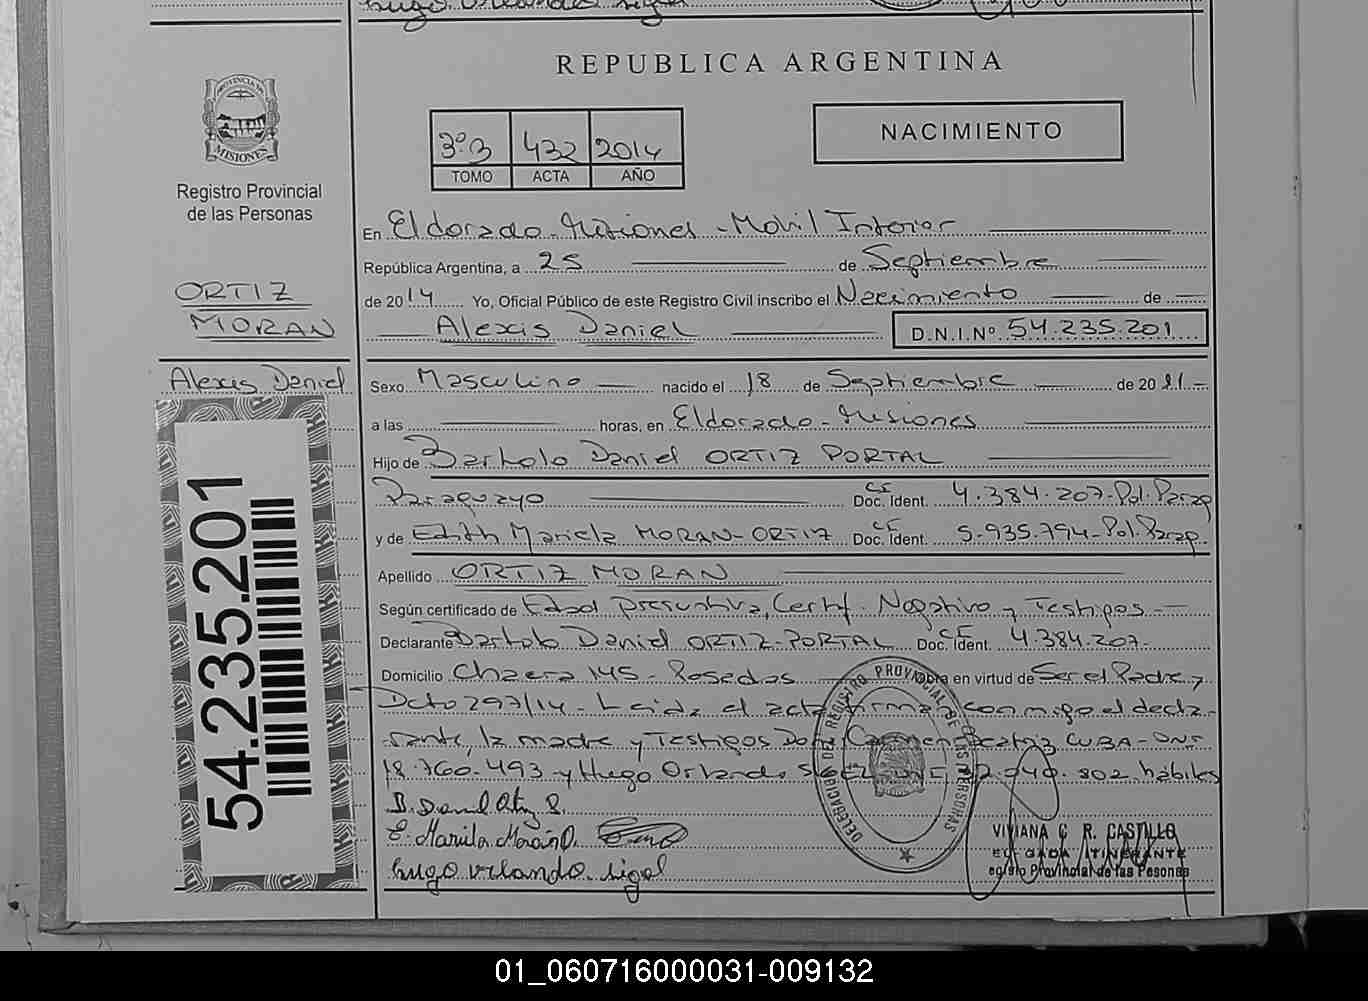 REPUBLICA ARGENTINA
PROVINCIA DE
MISIONES
Registro Provincial
de las Personas
3º3 432 2014
TOMO ACTA AÑO
NACIMIENTO
En Eldorado - Misiones - Movil Interior
República Argentina, a 25 de Septiembre
de 2014 Yo, Oficial Público de este Registro Civil inscribo el Nacimiento de
ORTIZ
MORAN
Alexis Daniel D.N.I.Nº 54.235.201
Alexis Daniel
54.235.201
Sexo Masculino nacido el 18 de Septiembre de 2011
a las horas, en Eldorado - Misiones
Hijo de Bartolo Daniel ORTIZ PORTAL
Paraguayo Doc. Ident. CE 4.384.207-Pol.Parag
y de Edith Mariela MORAN-ORTIZ Doc. Ident. CE 5.935.794-Pol.Parag.
Apellido ORTIZ MORAN
Según certificado de Edad presuntiva, Certif. Negativo y Testigos
Declarante Bartolo Daniel ORTIZ-PORTAL Doc. Ident. CE 4.384.207-
Domicilio Chacra 145 - Posadas Obra en virtud de Ser el Padre y
Dcto 297/14 - Leida el acta firma conmigo el decla-
rante, la madre y Testigos Doña Carmen Beatriz CUBA-DNI
18.760.493 y Hugo Orlando SIGEL DNI 22.040.802 hábiles
B. Daniel Ortiz P.
E. Mariela Morán O.
Hugo Orlando Sigel
DELEGACION DEL REGISTRO PROVINCIAL DE LAS PERSONAS
VIVIANA C R. CASTILLO
EL GADA ITINERANTE
egistro Provincial de las Pesonas
01_060716000031-009132